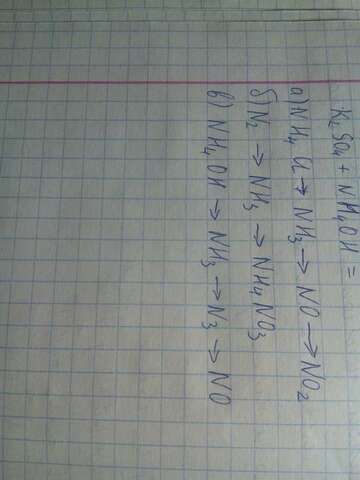 K₂SO₄ + NH₄OH =
а) NH₄Cl → NH₃ → NO → NO₂
б) N₂ → NH₃ → NH₄NO₃
в) NH₄OH → NH₃ → N₃ → NO